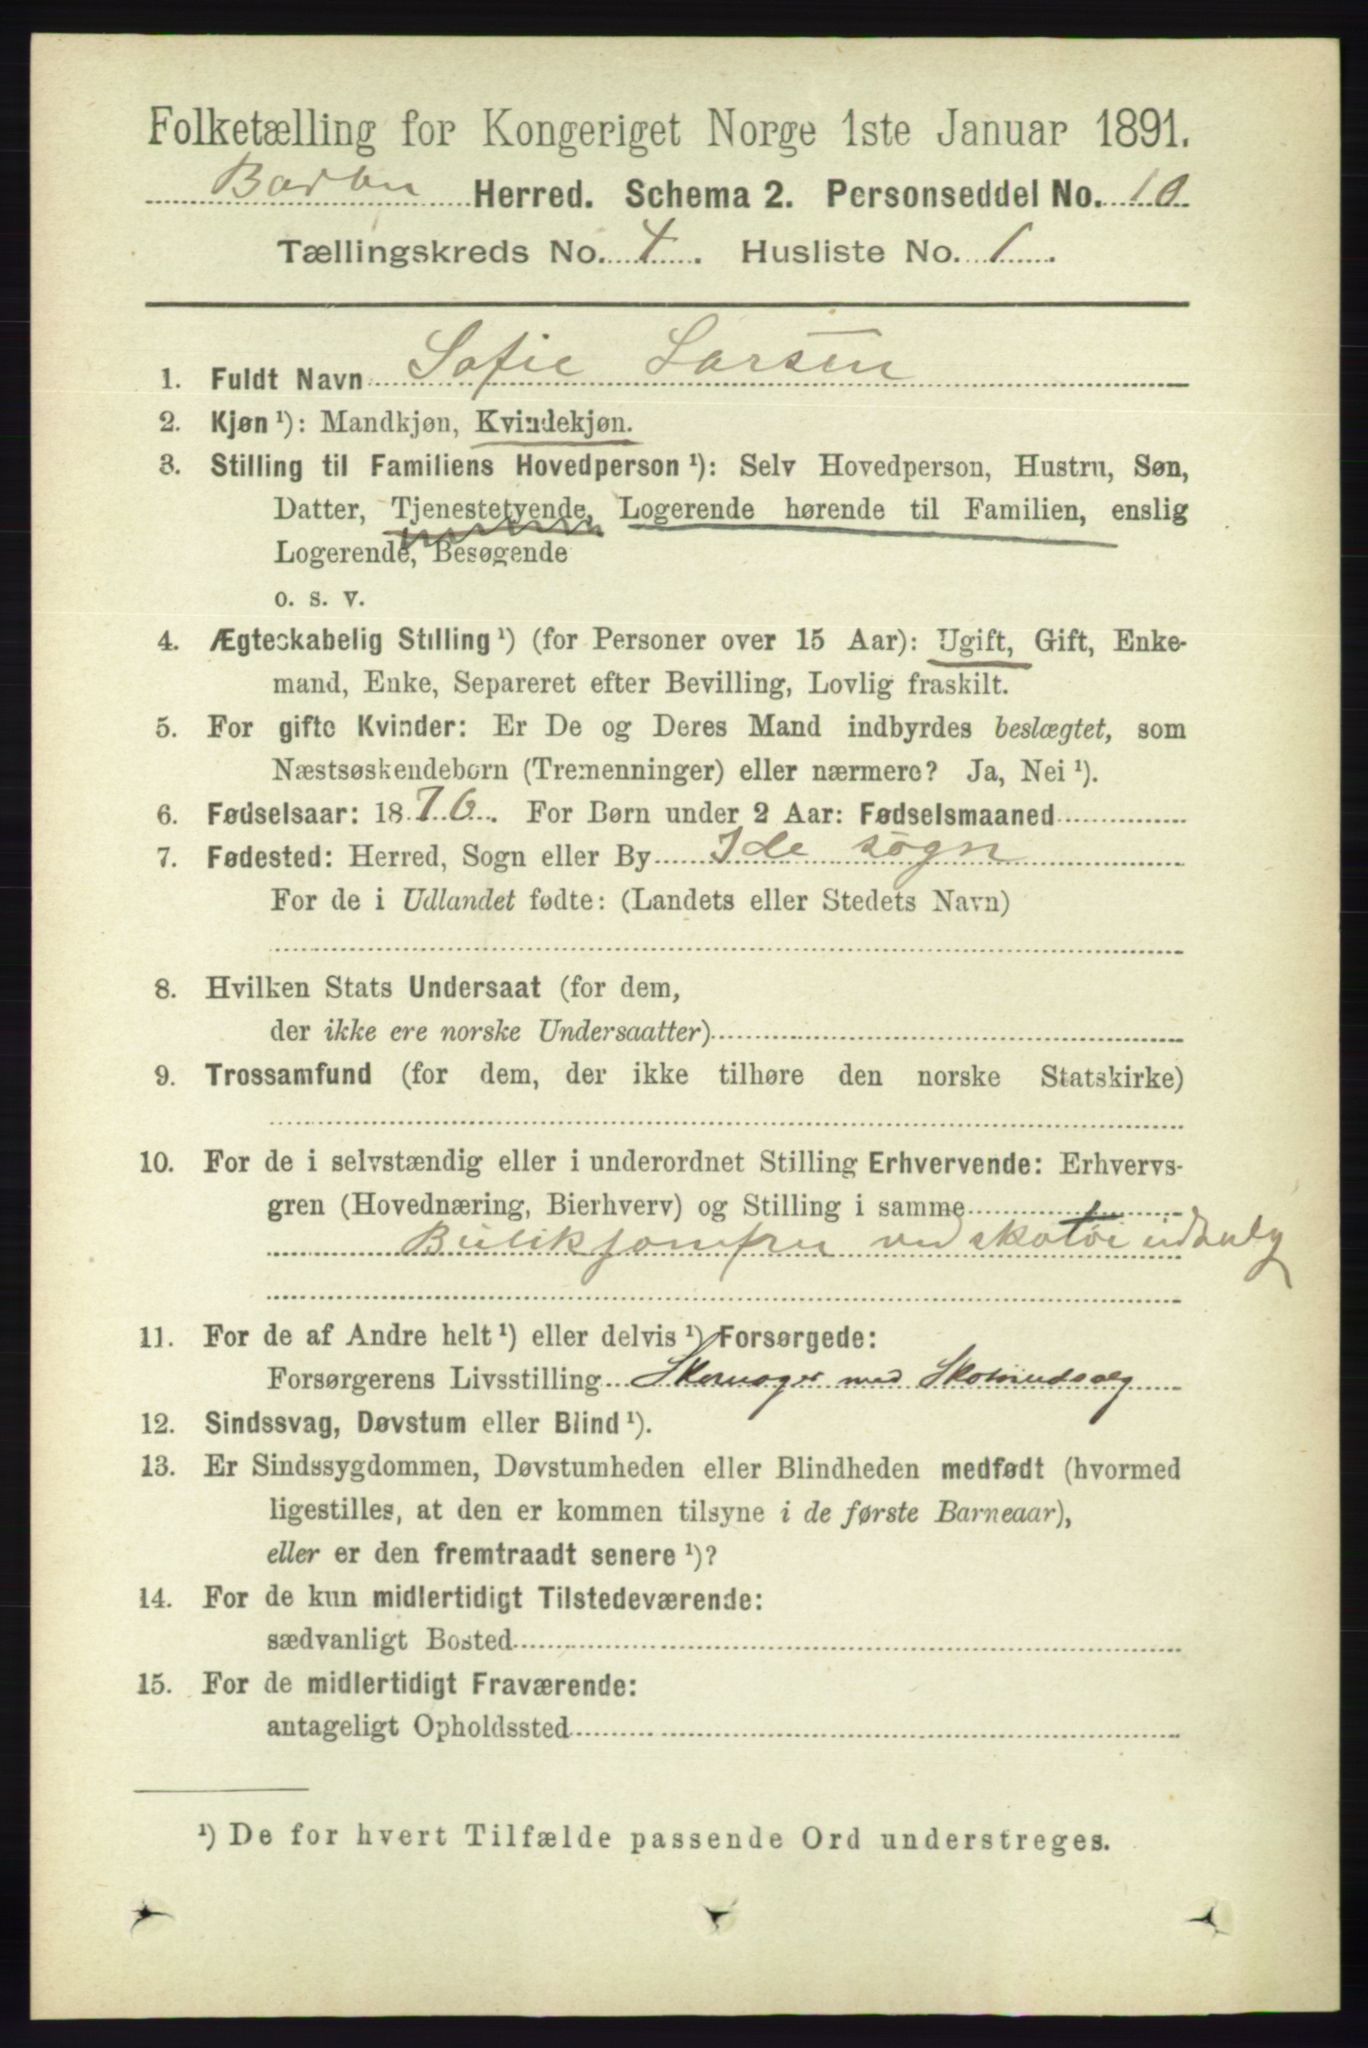 Folketælling for Kongeriget Norge 1ste Januar 1891.
Barbu Herred. Schema 2. Personseddel No. 10
Tællingskreds No. 4. Husliste No. 1.
1. Fuldt Navn Sofie Larsen
2. Kjøn ¹): Mandkjøn, Kvindekjøn.
3. Stilling til Familiens Hovedperson ¹): Selv Hovedperson, Hustru, Søn,
Datter, Tjenestetyende, Logerende hørende til Familien, enslig
Logerende, Besøgende
o. s. v.
4. Ægteskabelig Stilling ¹) (for Personer over 15 Aar): Ugift, Gift, Enke-
mand, Enke, Separeret efter Bevilling, Lovlig fraskilt.
5. For gifte Kvinder: Er De og Deres Mand indbyrdes beslægtet, som
Næstsøskendebørn (Tremenninger) eller nærmere? Ja, Nei ¹).
6. Fødselsaar: 1876. For Børn under 2 Aar: Fødselsmaaned
7. Fødested: Herred, Sogn eller By Ide sogn
For de i Udlandet fødte: (Landets eller Stedets Navn)
8. Hvilken Stats Undersaat (for dem,
der ikke ere norske Undersaatter)
9. Trossamfund (for dem, der ikke tilhøre den norske Statskirke)
10. For de i selvstændig eller i underordnet Stilling Erhvervende: Erhvervs-
gren (Hovednæring, Bierhverv) og Stilling i samme
Butikjomfru ved skotøiudsalg
11. For de af Andre helt ¹) eller delvis ¹) Forsørgede:
Forsørgerens Livsstilling Skomager med
12. Sindssvag, Døvstum eller Blind ¹).
13. Er Sindssygdommen, Døvstumheden eller Blindheden medfødt (hvormed
ligestilles, at den er kommen tilsyne i de første Barneaar),
eller er den fremtraadt senere ¹)?
14. For de kun midlertidigt Tilstedeværende:
sædvanligt Bosted
15. For de midlertidigt Fraværende:
antageligt Opholdssted
¹) De for hvert Tilfælde passende Ord understreges.